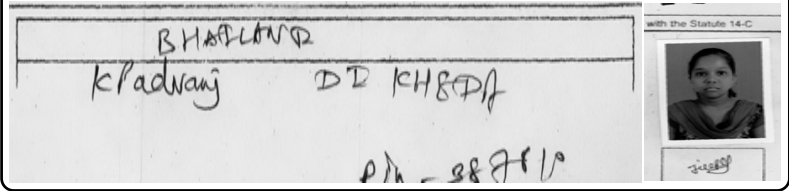 BHAILAND
KPadvanj DI KHEDA
Pin - 38
with the Statute 14-C